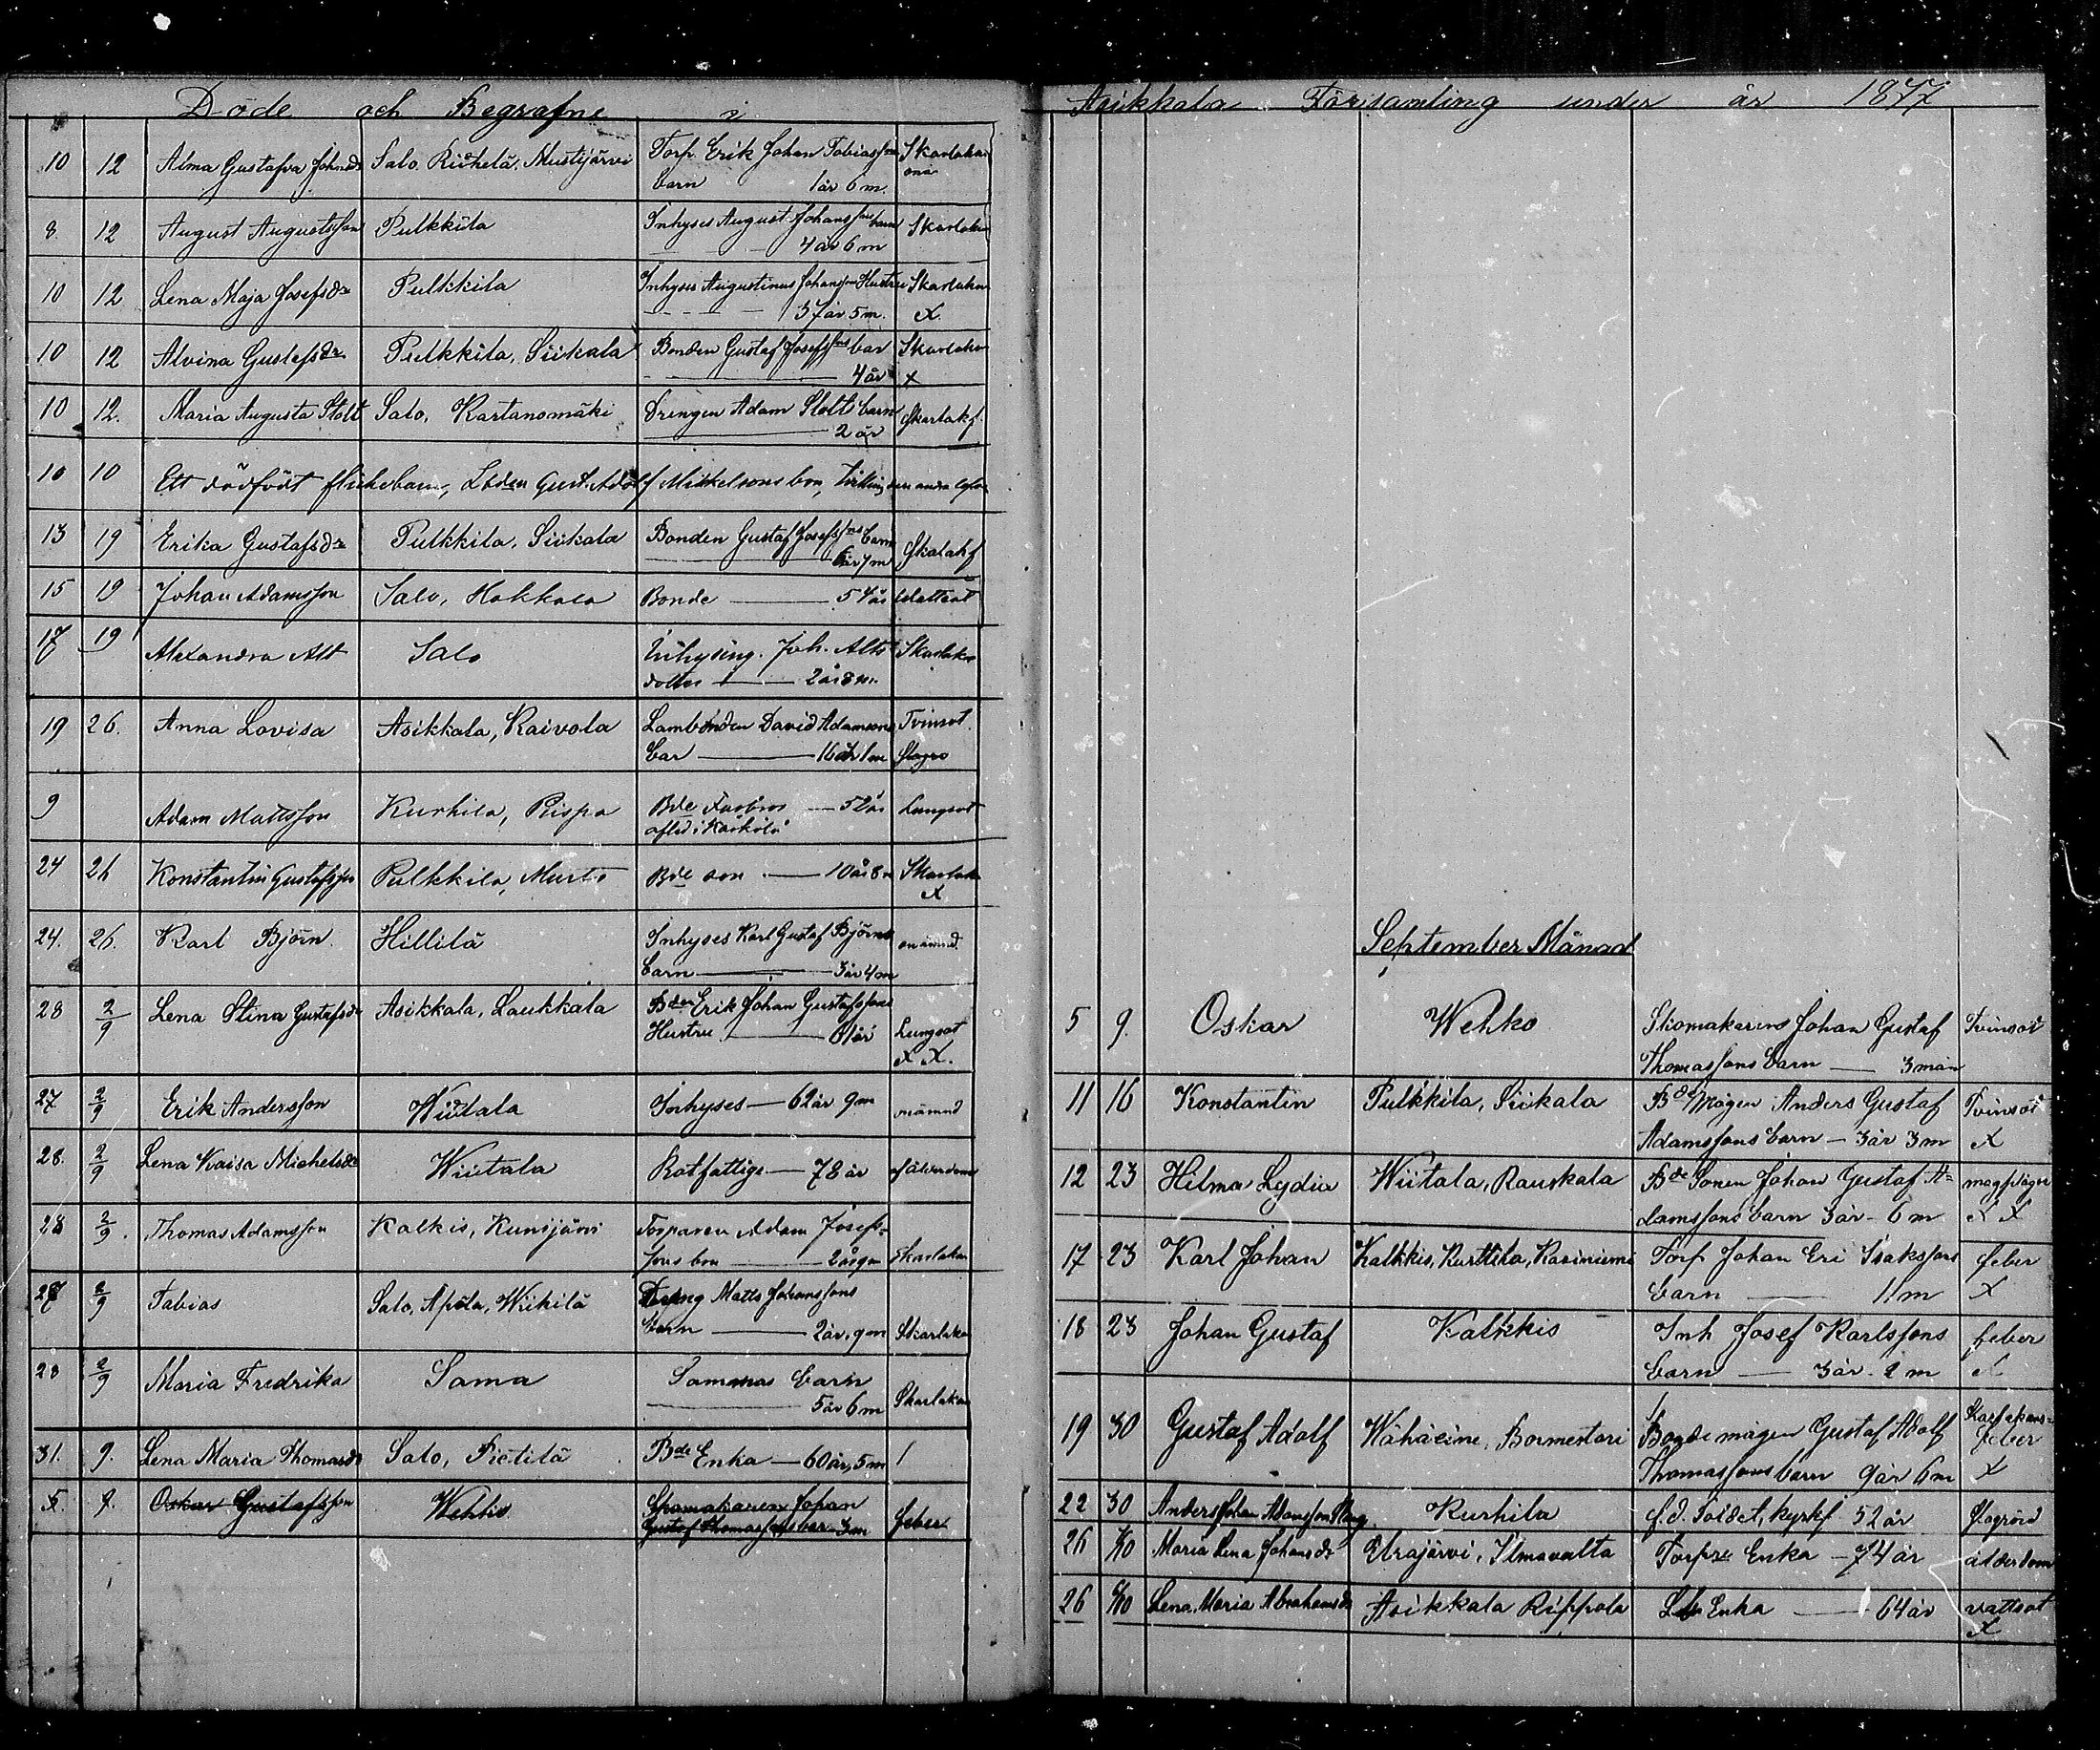 Döde och Begrafne i
10 12 Alma Gustafva Johansdr Salo, Riihelä, Mustijärvi Torp. Erik Johan Tobiassons Skarlakan
barn 1 år 6 m.
8. 12 August Augustsson Pulkkila Inhyses August Johanssons barn Skarlakan
4 år 6 m
10 12 Lena Maja Josefsdr Pulkkila Inhyses Augustinus Johanssons Hustru Skarlakan
37 år 5 m. X
10 12 Alvina Gustafsdr Pulkkila, Siikala Bonden Gustaf Josefssons bar Skarlakan
4 år X
10 12. Maria Augusta Stolt Salo, Kartanomäki Drengen Adam Stolts barn Skarlakf.
2 år
10 10 Ett dödfödt flickebarn, Gust. Adolf Mikkelsons bon, tvilling den andra
13 19 Erika Gustafsdr Pulkkila, Siikala Bonden Gustaf Josefssons barn Skalakf
7 m
15 19 Johan Adamsson Salo, Hakkala Bonde 54 år Wattsot
17 19 Alexandra Alt Salo Inhysing. Joh. Alts Skarlakan
dotter 2 år 8 m.
19 26. Anna Lovisa Asikkala, Raivola Lambonden David Adamsons Tvinsot.
bar 16 år 1 m
9 Adam Mattsson Kurhila, Rispa Bde Farbror 52 år Lungsot
afled i Kärkölä
24 26 Konstantin Gustafsson Pulkkila, Murto Bde son 10 år 8 m Skarlakan
X
24. 26. Karl Björn. Hillilä Inhyses Karl Gustaf Björns onämnd.
barn 3 år 4 m
28 2/9 Lena Stina Gustafsdr Asikkala, Laukkala Bden Erik Johan Gustafssons
Hustru 61 år Lungsot
X X.
27 2/9 Erik Andersson Wiitala Inhyses 62 år 9 m onämnd
28. 2/9 Lena Kaisa Michelsdr Wiitala Rotfattige 78 år af ålderdom
28 2/9. Thomas Adamsson Kalkis, Kunijärvi Torparen Adam Josefs-
sons bon 2 år 9 m Skarlakan
28 2/9 Tabias Salo, Apola, Wiikilä Dreng Matts Johanssons
barn 2 år 9 m Skarlakan
28 2/9 Maria Fredrika Sama Sammas barn
5 år 6 m Skarlakan
31. 9. Lena Maria Thomasdr Salo, Pietilä Bde Enka 60 år, 5 m
5. 9. Oskar Gustafsson Wehko Skomakaren Johan
Gustaf Thomassons bar 3 m feber
Asikkala Församling under år 1877
September Månad
5 9. Oskar Wehko Skomakarens Johan Gustaf Tvinsot
Thomassons barn 3 mån
11 16 Konstantin Pulkkila, Siikala Bde Mågen Anders Gustaf Tvinsot
Adamssons barn 3 år 3 m X
12 23 Hilma Lydia Wiitala, Rauskala Bde Sonen Johan Gustaf A=
damssons barn 3 år 6 m X X
17 23 Karl Johan Kalkkis, Kurttila, Kasiniemi Torp Johan Eri Isakssons feber
barn 11 m X
18 23 Johan Gustaf Kalkkis Inh Josef Karlssons feber
barn 3 år 2 m X
19 30 Gustaf Adolf Wähäeine, Bormestari Bondemågen Gustaf Adolf Skarlakans=
feber
Thomassons barn 9 år 6 m X
22 30 Anders Johan Adamsson Kurhila f.d. Soldat, kyrkf 52 år
26 Maria Lena Johansdr Urajärvi, Ilmavalta Torpre Enka 74 år ålderdom
26 Lena Maria Abrahamsdr Asikkala Rippola Enka 64 år vattsot
X